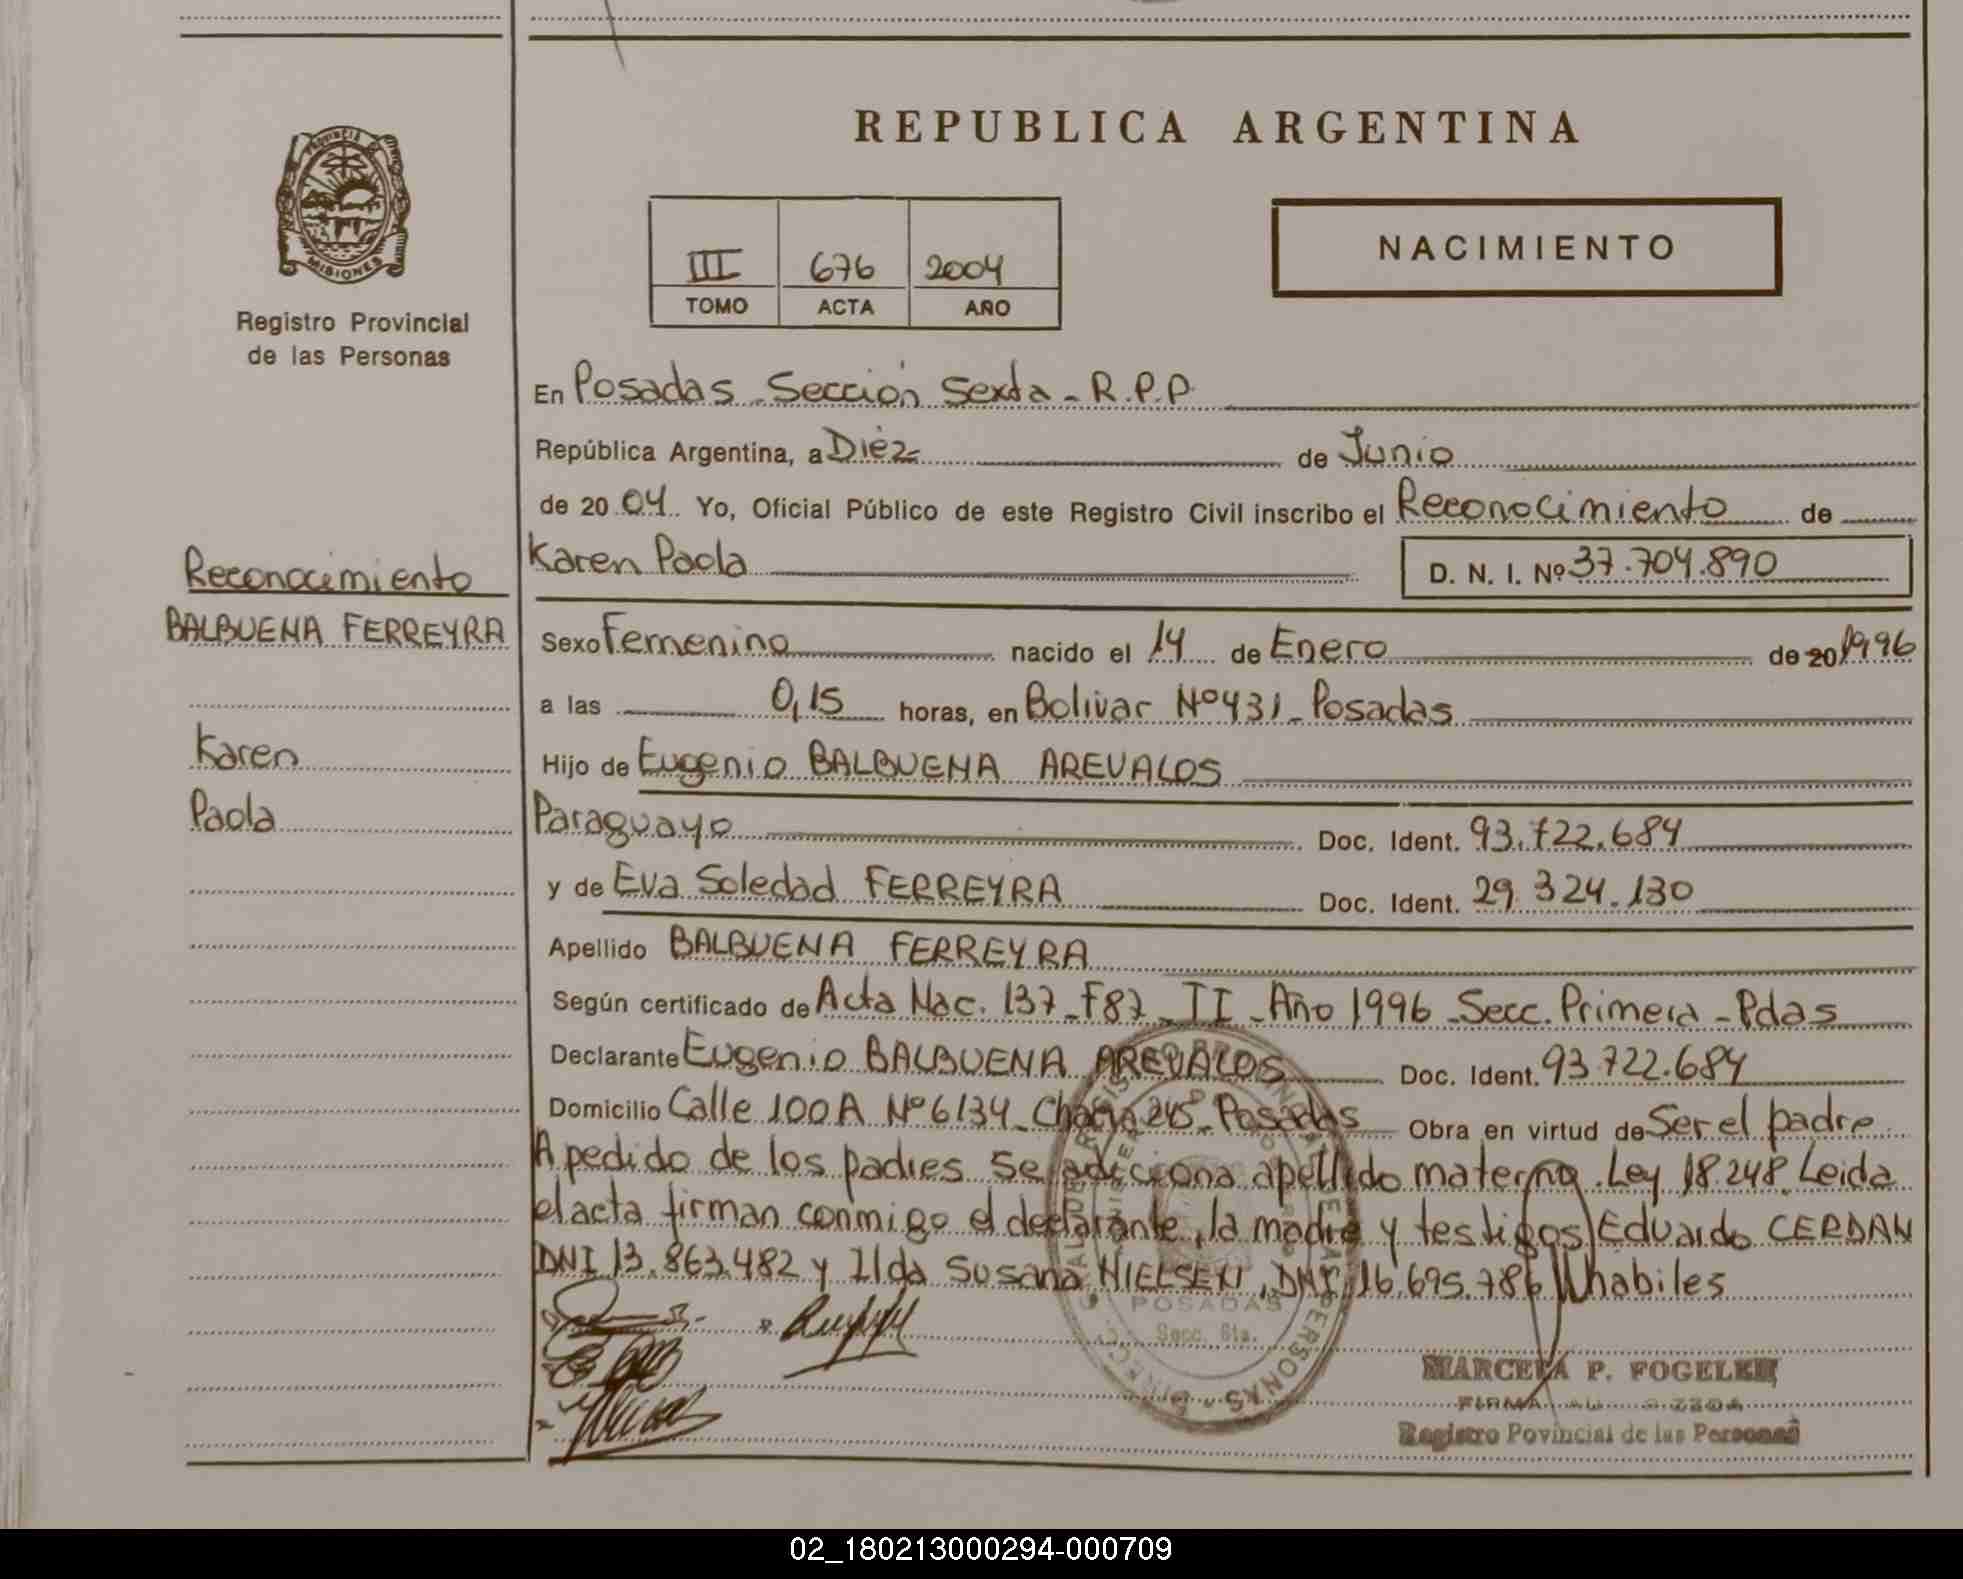 REPUBLICA ARGENTINA
PROVINCIA DE
MISIONES
Registro Provincial
de las Personas
III 676 2004
TOMO ACTA AÑO
NACIMIENTO
En Posadas - Sección Sexta - R.P.P
República Argentina, a Diéz de Junio
de 20 04 Yo, Oficial Público de este Registro Civil inscribo el Reconocimiento de
Karen Paola D. N. I. Nº 37.704.890
Reconocimiento
BALBUENA FERREYRA
Karen
Paola
Sexo Femenino nacido el 14 de Enero de 20 1996
a las 0,15 horas, en Bolivar Nº 431 - Posadas
Hijo de Eugenio BALBUENA AREVALOS
Paraguayo Doc. Ident. 93.722.684
y de Eva Soledad FERREYRA Doc. Ident. 29.324.130
Apellido BALBUENA FERREYRA
Según certificado de Acta Nac. 137 - F87 - II - Año 1996 - Secc. Primera - Pdas
Declarante Eugenio BALBUENA AREVALOS Doc. Ident. 93.722.684
Domicilio Calle 100 A Nº 6134 - Chacra 245 - Posadas Obra en virtud de Ser el padre
A pedido de los padres se adiciona apellido materno. Ley 18.248. Leida
el acta firman conmigo el declarante, la madre y testigos Eduardo CERDAN
DNI 13.863.482 y Ilda Susana NIELSEN, DNI 16.695.786 habiles
POSADAS
Secc. 6ta.
MARCELA P. FOGELER
FIRMA
Registro Povincial de las Personas
02_180213000294-000709